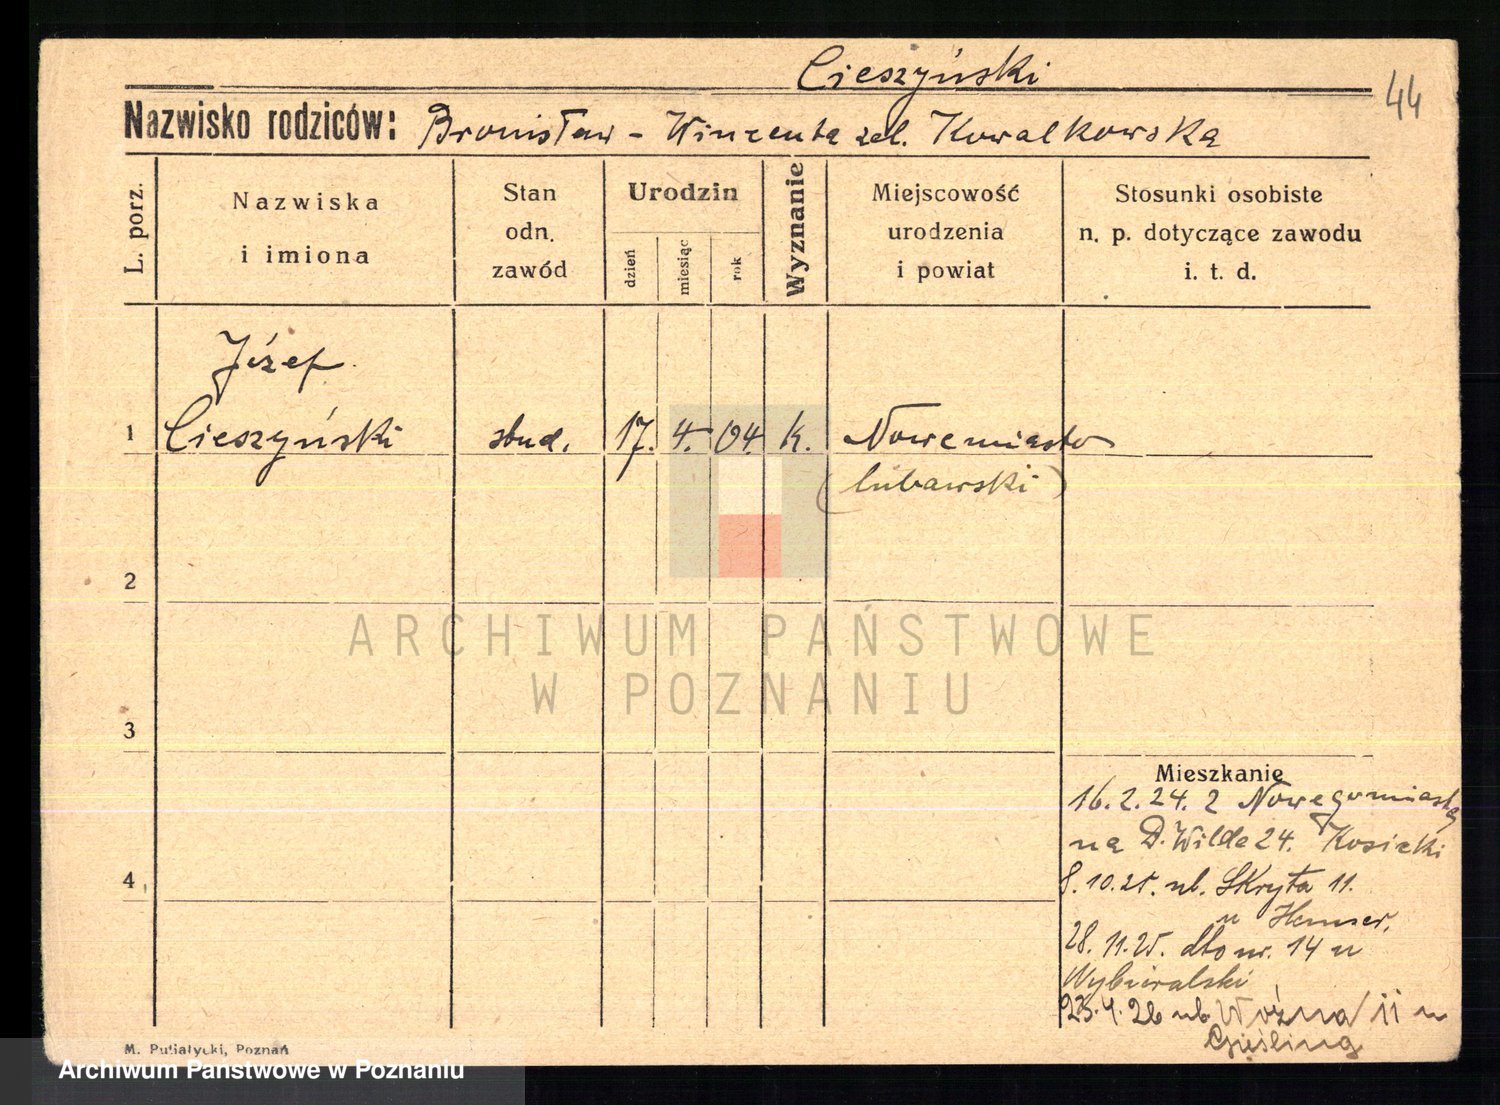 Cieszyński
44
Nazwisko rodziców: Bronisław - Wincenta zd. Kowalkowska
L. porz.
Nazwiska
i imiona
Stan
odn.
zawód
Urodzin
dzień
miesiąc
rok
Wyznanie
Miejscowość
urodzenia
i powiat
Stosunki osobiste
n. p. dotyczące zawodu
i. t. d.
Józef
1 Cieszyński stud. 17. 4. 04. k. Nowemiasto
(lubawski)
2
ARCHIWUM PAŃSTWOWE
W POZNANIU
3
Mieszkanie
16.2.24. z Nowegomiasta
na D. Wilda 24. Kosicki
4
8.10.25. ul. Skryta 11.
u
28.11.25. dto nr. 14 u
Wybieralski
23.4.26 ul. Woźna 11 u
M. Putiatycki, Poznań
Archiwum Państwowe w Poznaniu